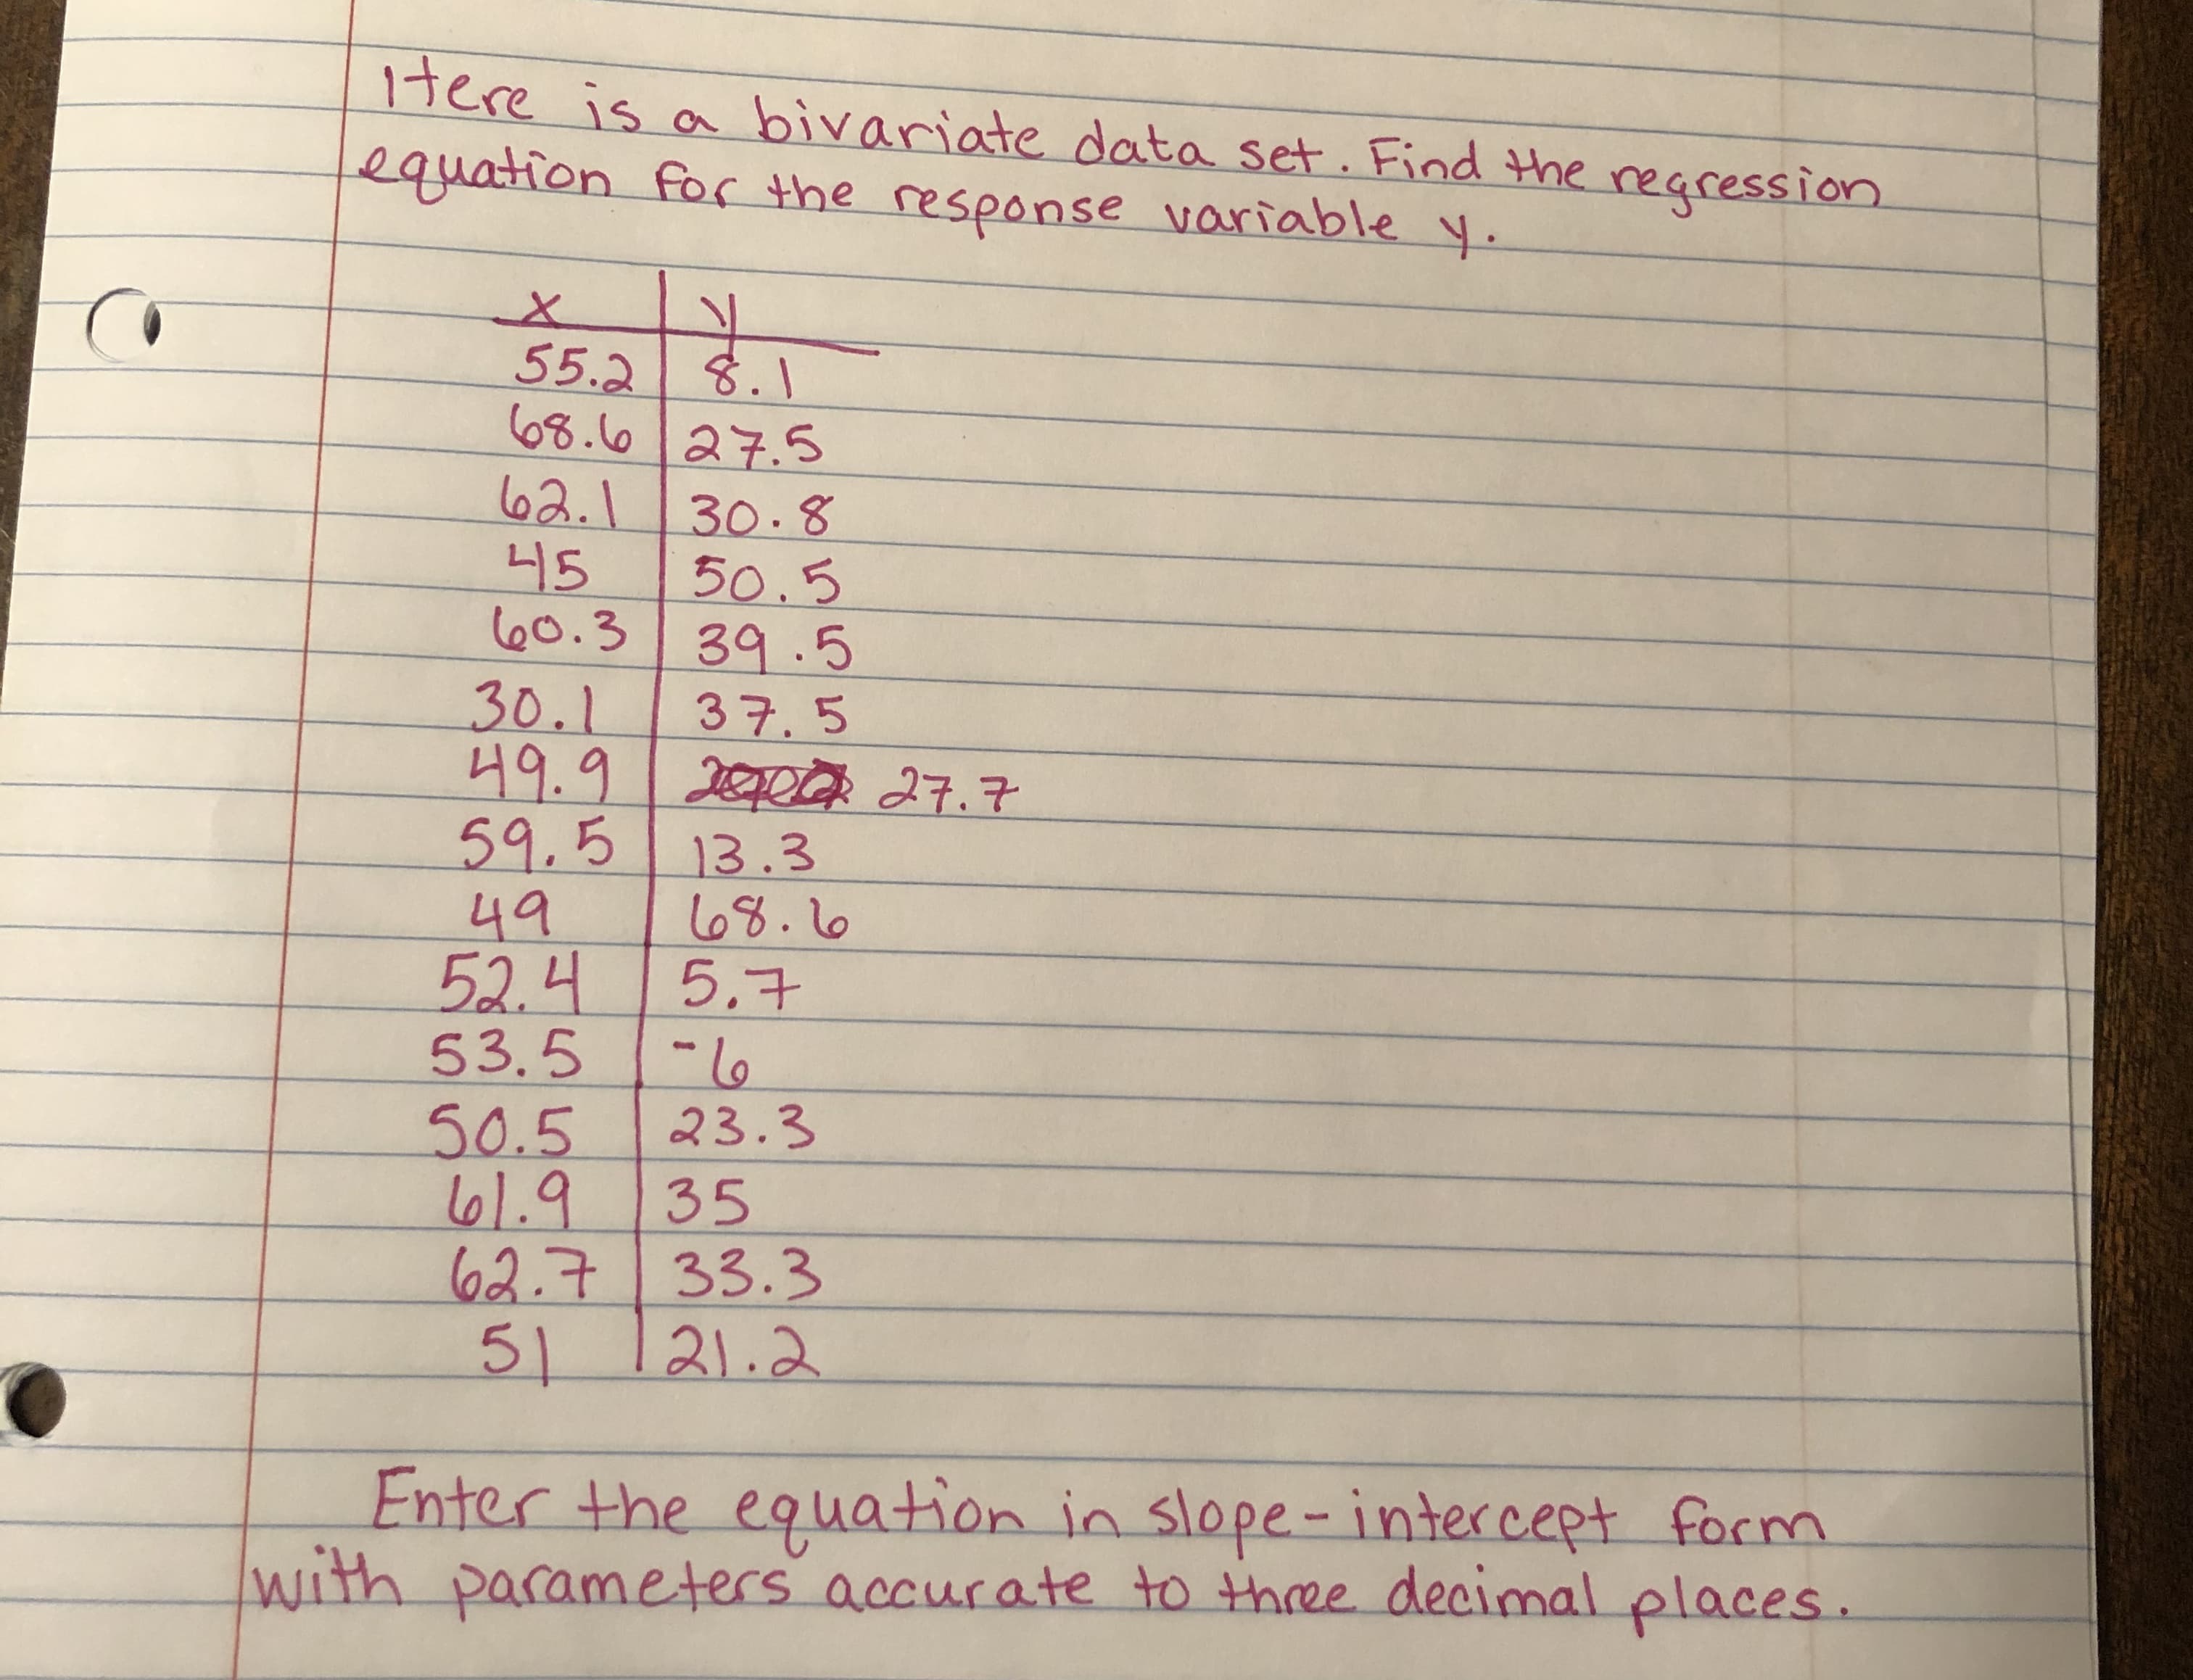 Here is a bivariate data set. Find the regression
equation for the response variable y.
x y
55.2 8.1
68.6 27.5
62.1 30.8
45 50.5
60.3 39.5
30.1 37.5
49.9 27.7
59.5 13.3
49 68.6
52.4 5.7
53.5 -6
50.5 23.3
61.9 35
62.7 33.3
51 21.2
Enter the equation in slope-intercept form
with parameters accurate to three decimal places.